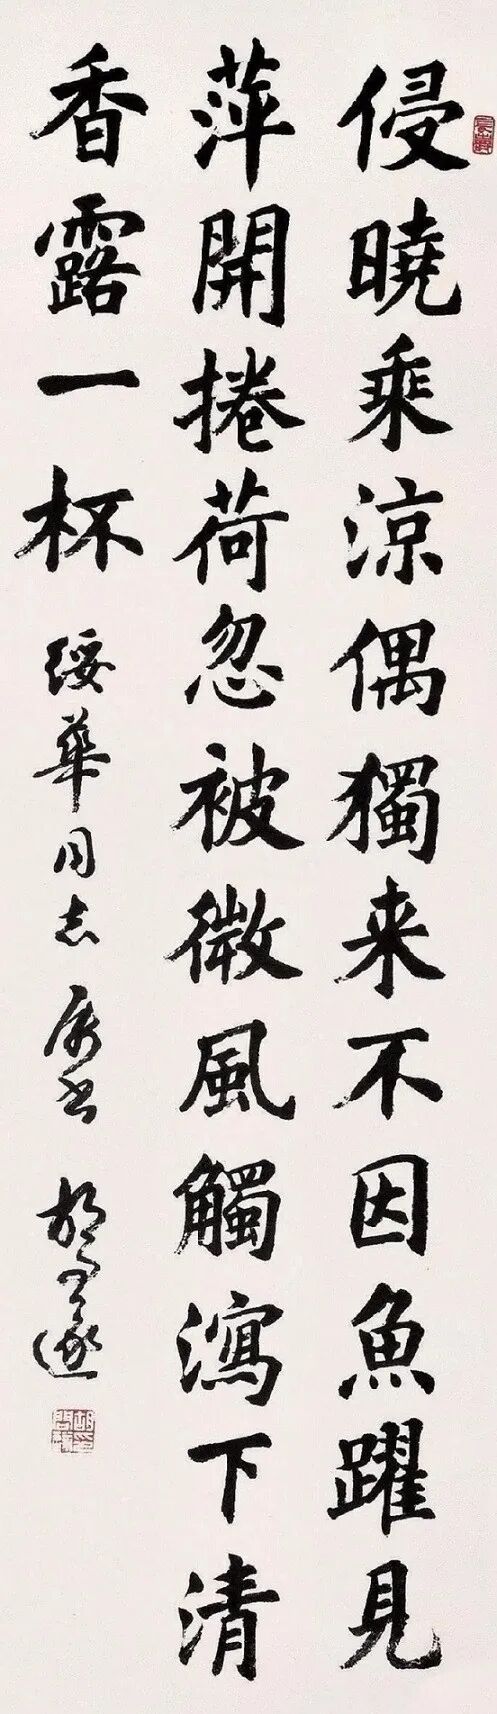 侵曉乘涼偶獨来不因魚躍見
萍開捲荷忽被微風觸瀉下清
香露一杯
綏華同志 屬書 胡問遂